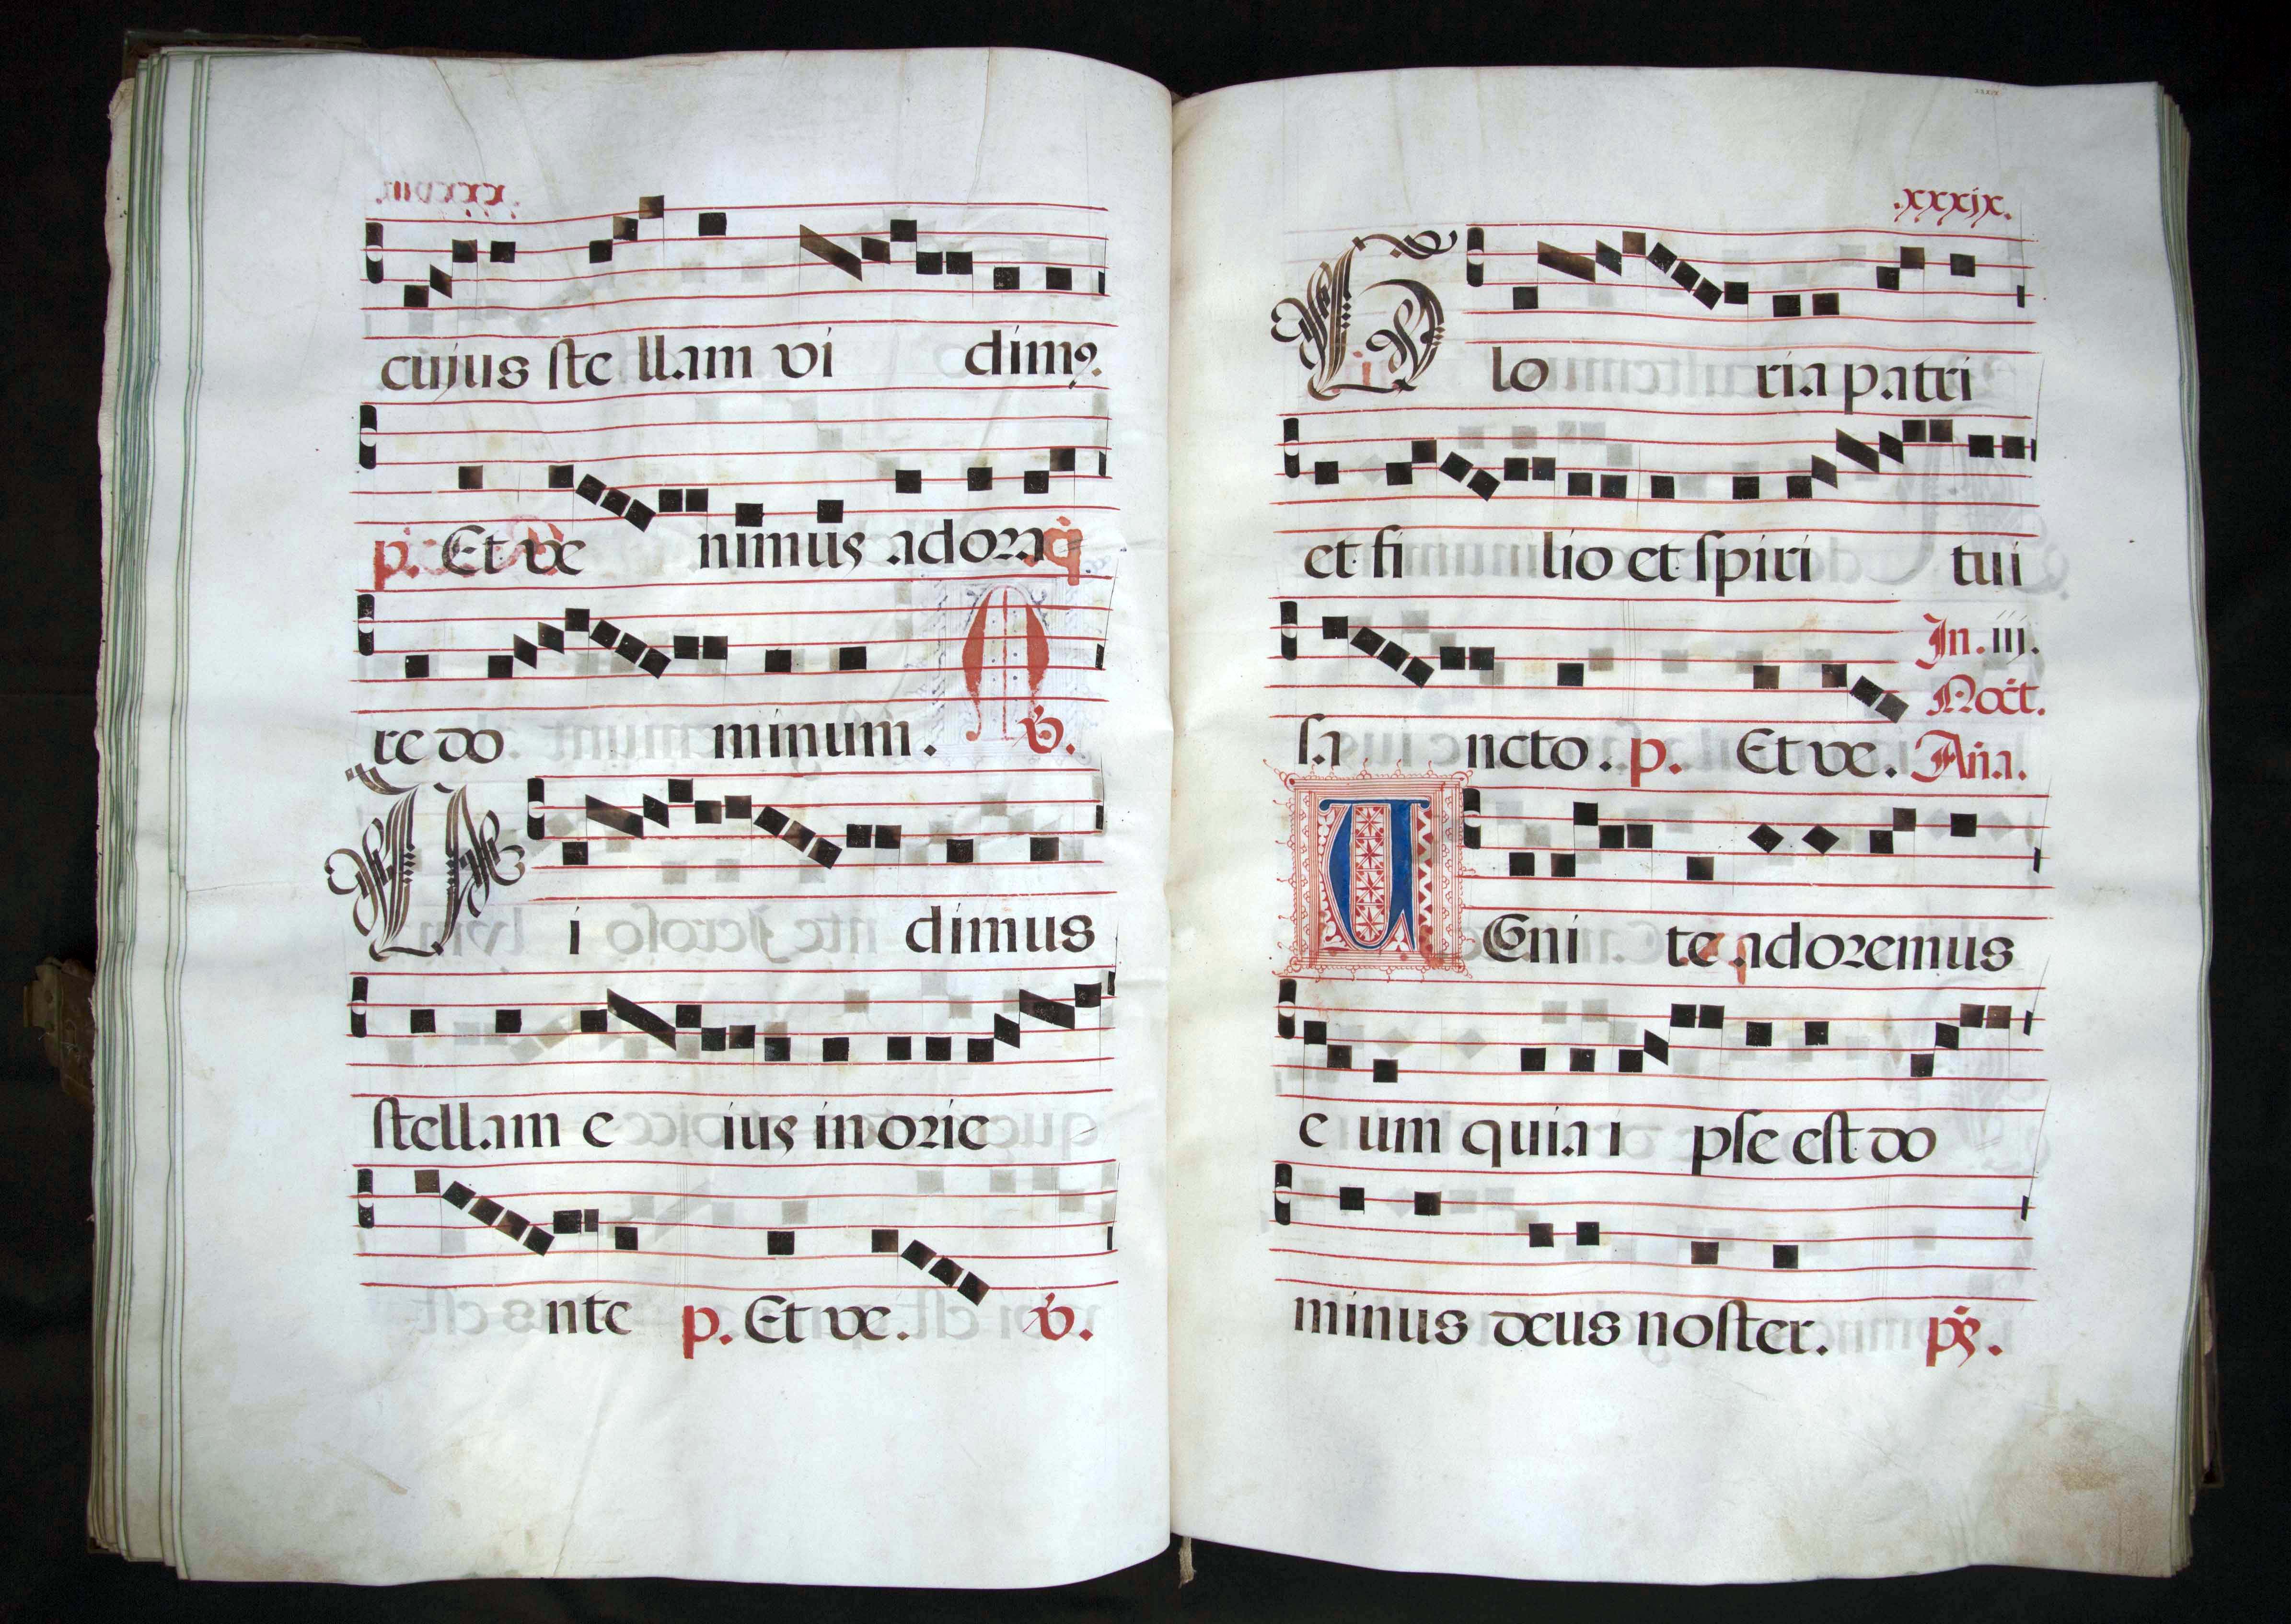 cuius ste llam vi dimꝰ.
p. Et ve nimus adora
re do minum. ỽ.
V i dimus
stellam e ius in orie
nte p. Et ve. ỽ.
.xxxix.
G lo ria patri
et fi lio et spiri tui
In. iij.
Noct.
sa ncto. p. Et ve. Aña.
VEni te adoremus
e um quia i pse est do
minus deus noster. ps.